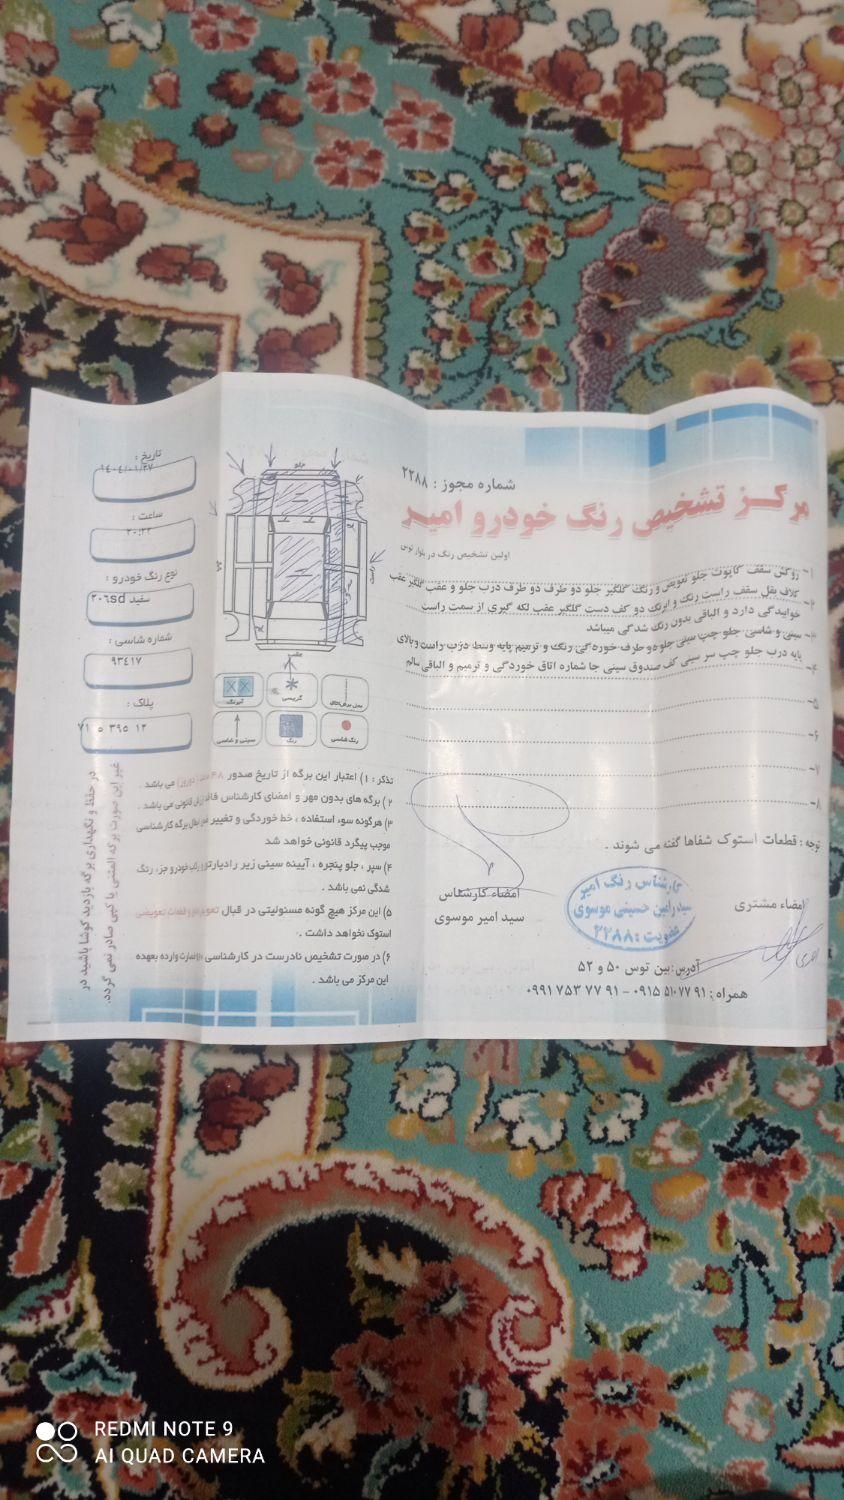 شماره مجوز : ۲۲۸۸
مرکز تشخیص رنگ خودرو امیر
اولین تشخیص رنگ در بلوار توس
۱- روکش سقف کاپوت جلو تعویض و رنگ گلگیر جلو دو طرف دو طرف درب جلو و عقب گلگیر عقب
۲- کلاف بغل سقف راست رنگ و ابرنگ دو کف دست گلگیر عقب لکه گیری از سمت راست
خوابیدگی دارد و الباقی بدون رنگ شدگی میباشد
۳- سینی و شاسی جلو چپ سینی جلو دو طرف خورده گی رنگ و ترمیم پایه وسط درب راست و بالای
۴- پایه درب جلو چپ سر سینی کف صندوق سینی جا شماره اتاق خوردگی و ترمیم و الباقی سالم
۵-
۶-
۷-
۸-
توجه : قطعات استوک شفاها گفته می شوند .
امضاء مشتری
امضاء کارشناس
سید امیر موسوی
کارشناس رنگ امیر
سیدرامین حسینی موسوی
عضویت : ۲۲۸۸
آدرس : بین توس ۵۰ و ۵۲
همراه : ۰۹۱۵ ۵۱۰ ۷۷ ۹۱ - ۰۹۹۱ ۷۵۳ ۷۷ ۹۱
تاریخ :
۱۴۰۴/۰۱/۲۷
ساعت :
۲۰:۲۲
نوع رنگ خودرو :
سفید ۲۰۶sd
شماره شاسی :
۹۳۴۱۷
پلاک :
۷۱ ۵ ۳۹۵ ۱۲
جلو
راست
چپ
عقب
آبرنگ
گریسی
سینی و شاسی
رنگ
رنگ شاسی
تذکر : ۱) اعتبار این برگه از تاریخ صدور ۴۸ ساعت (دو روز) می باشد .
۲) برگه های بدون مهر و امضای کارشناس فاقد ارزش قانونی می باشد .
۳) هرگونه سوء استفاده ، خط خوردگی و تغییر برگه کارشناسی
موجب پیگرد قانونی خواهد شد
۴) سپر ، جلو پنجره ، آیینه سینی زیر رادیاتور خودرو جزء رنگ
شدگی نمی باشد .
۵) این مرکز هیچ گونه مسئولیتی در قبال قطعات تعویضی
استوک نخواهد داشت .
۶) در صورت تشخیص نادرست در کارشناسی خسارت وارده بعهده
این مرکز می باشد .
در حفظ و نگهداری برگه بازدید کوشا باشید در
غیر این صورت برگه المثنی یا کپی صادر نمی گردد.
REDMI NOTE 9
AI QUAD CAMERA